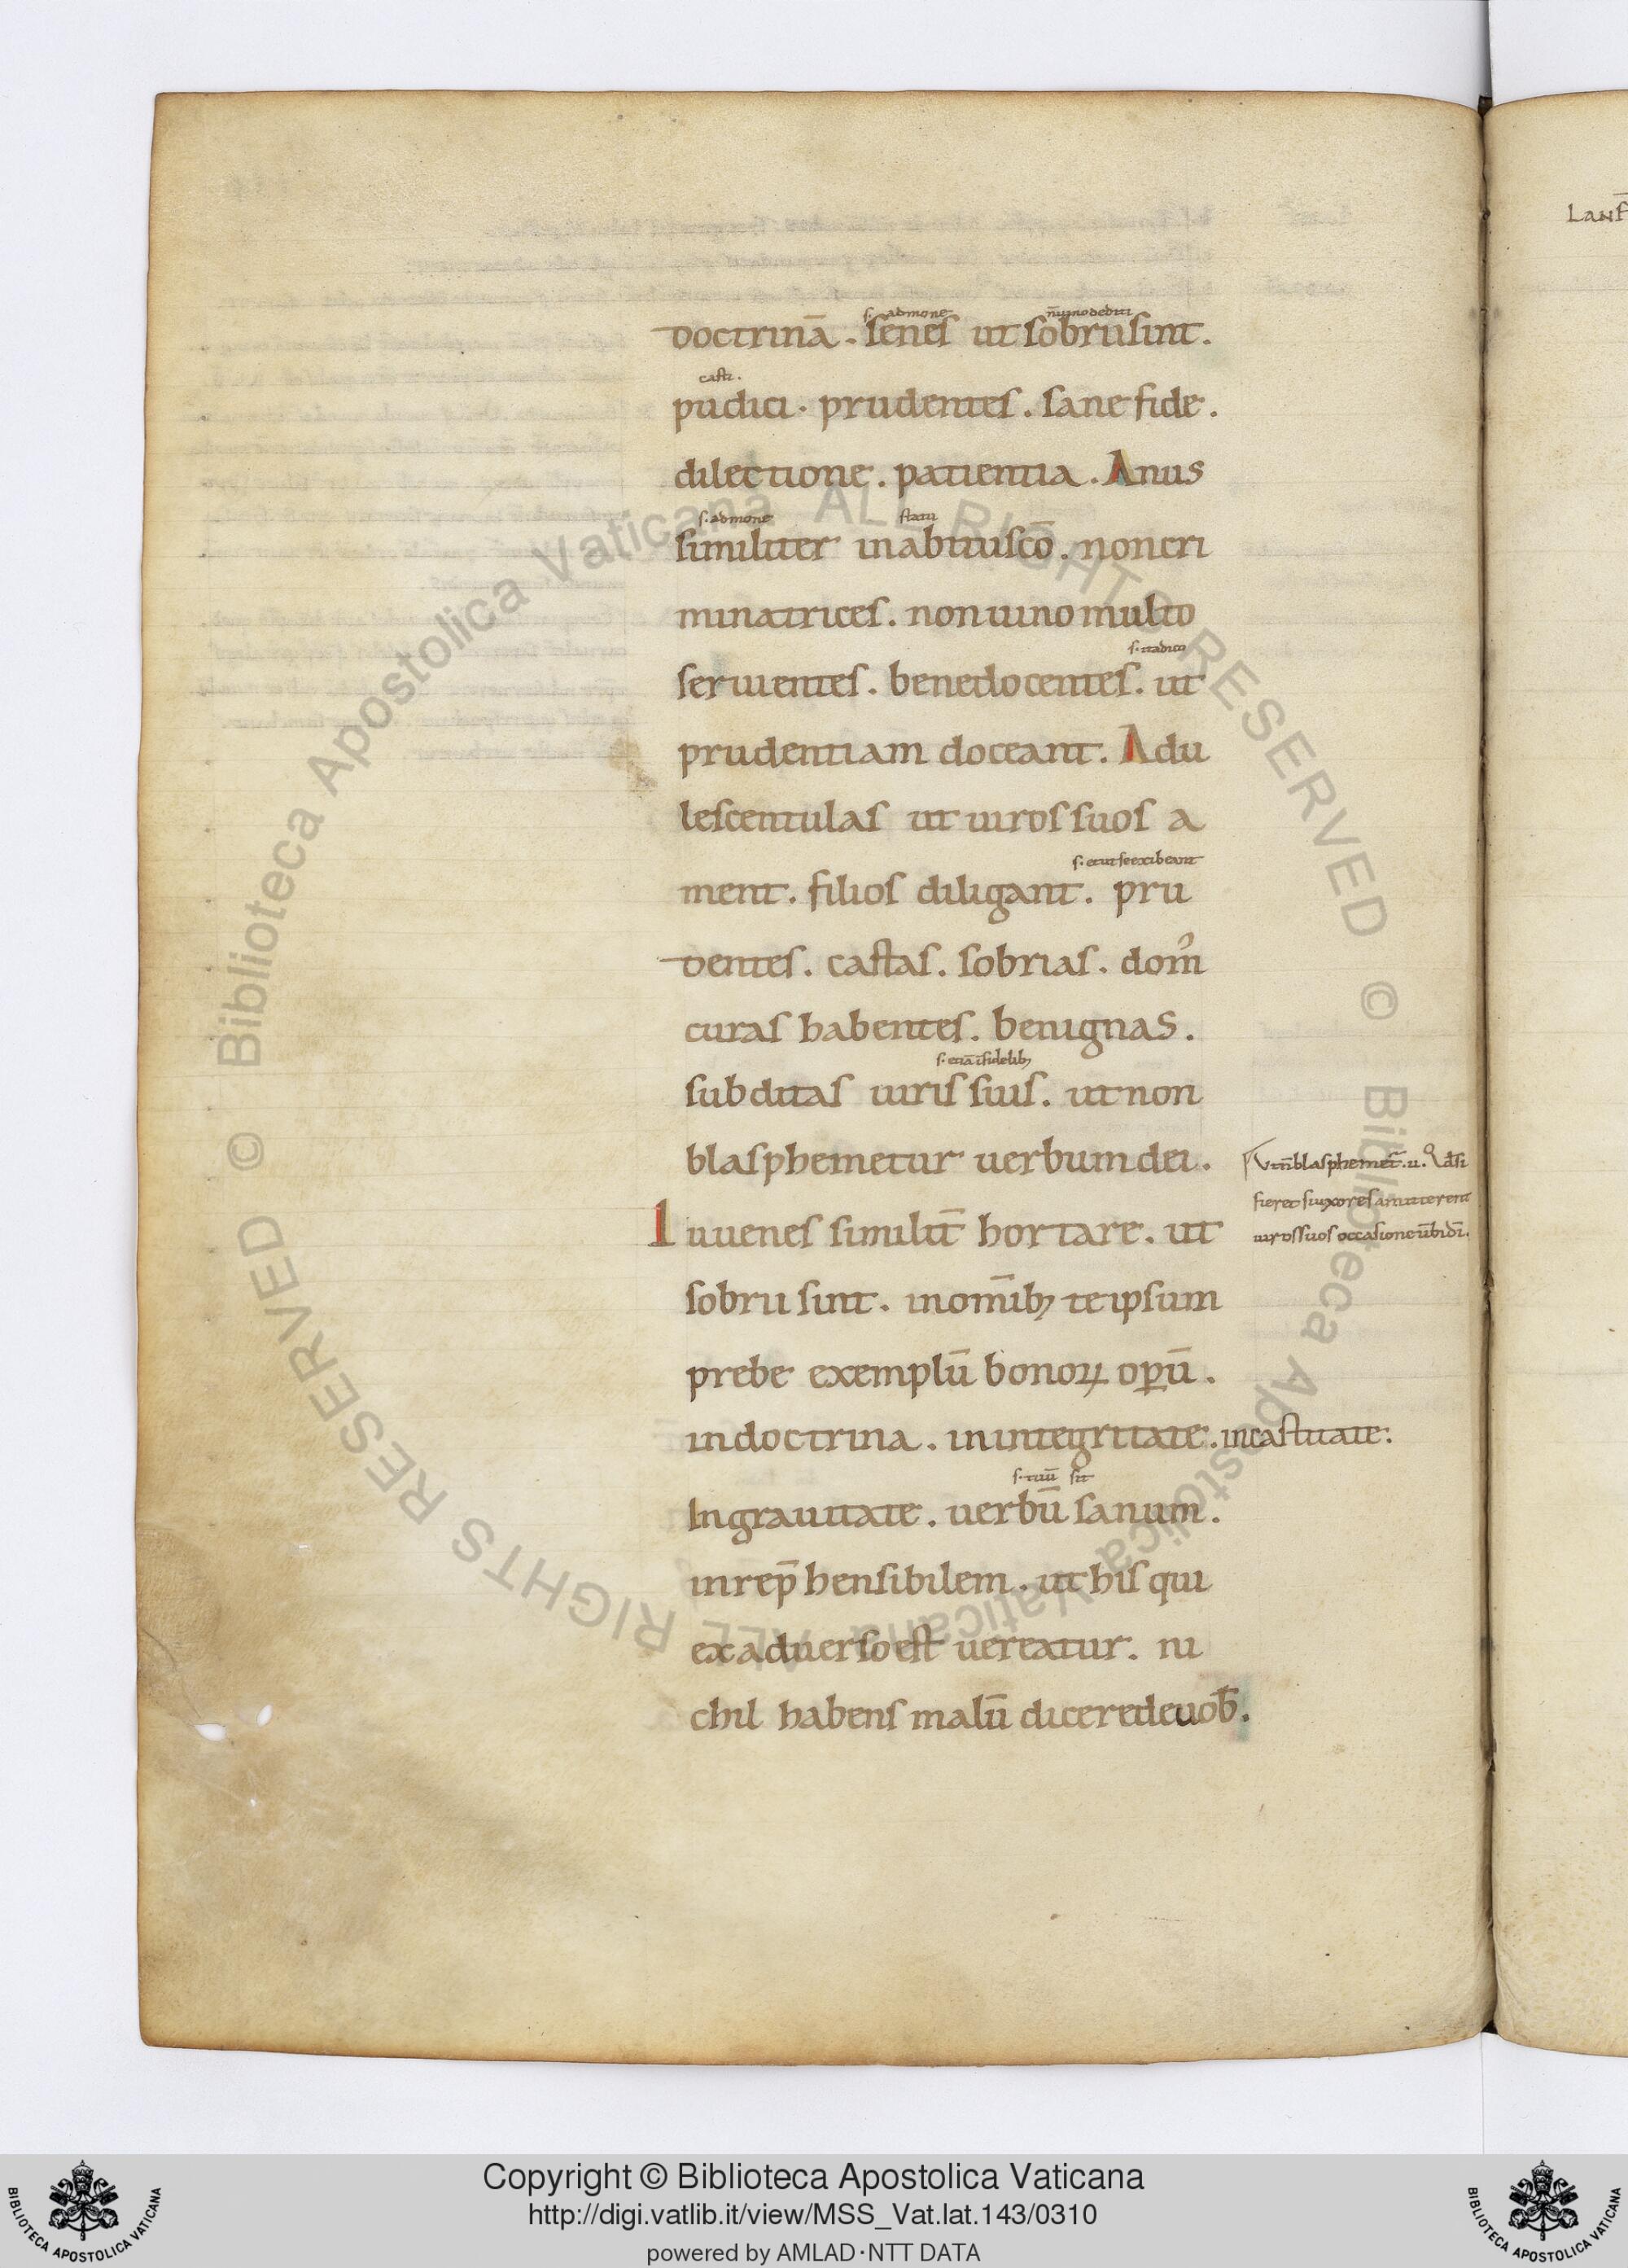 s. admone n̄ uino dediti
doctrinā. senes ut sobrii sint.
casti.
pudici. prudentes. sane fide.
dilectione. patientia. Anus
s. admone statu
similiter in abitu sc̄o. non cri
minatrices. non uino multo
s. ita dico
seruientes. bene docentes. ut
prudentiam doceant. Adu
lescentulas ut uiros suos a
s. et ut se exibeant
ment. filios diligant. pru
dentes. castas. sobrias. domꝰ
curas habentes. benignas.
s. etiā īfidelibꝫ
subditas uiris suis. ut non
blasphemetur uerbum dei.
Ut n̄ blasphemet̄. u.
fieret si uxores amitterent
uiros suos occasione ūbi dī.
Iuuenes similit̄ hortare. ut
sobrii sint. in om̄ibꝫ te ipsum
prebe exemplū bonoꝝ oꝑū.
in doctrina. in integritate. in castitate.
s. tuū sit
In grauitate. uerbū sanum.
inrep̄hensibilem. ut his qui
ex aduerso est uereatur. ni
chil habens malū dicere de uob̄.
Lanf̄
Copyright © Biblioteca Apostolica Vaticana
http://digi.vatlib.it/view/MSS_Vat.lat.143/0310
powered by AMLAD·NTT DATA
BIBLIOTECA APOSTOLICA VATICANA
BIBLIOTECA APOSTOLICA VATICANA
© Biblioteca Apostolica Vaticana ALL RIGHTS RESERVED
© Biblioteca Apostolica Vaticana ALL RIGHTS RESERVED